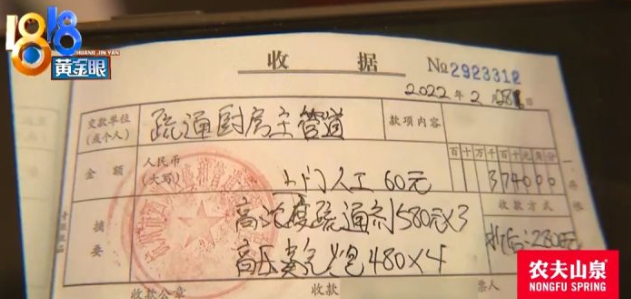 1818
HUANG JIN YAN
黄金眼
收 据
No 2923312
2022年2月28日
交款单位(或个人) 疏通厨房主管道 款项内容
金额 人民币(大写) 上门人工 60元 百十万千百十元角分
374000
摘要 高浓度疏通剂580元×3 收款方式
高压 480×4 折后:2280元
收款公章 收款 票人
农夫山泉
NONGFU SPRING